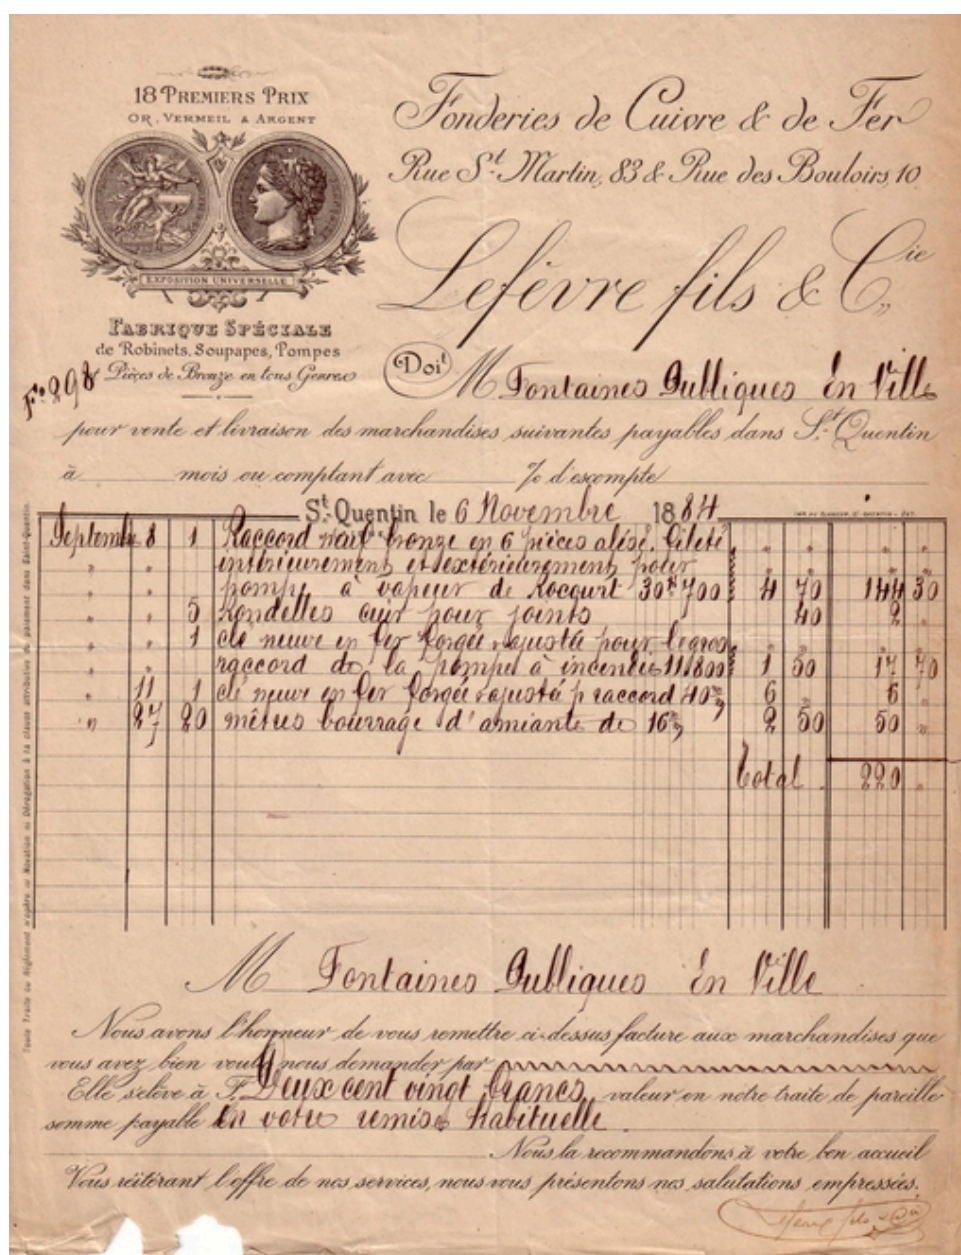 18 PREMIERS PRIX
OR, VERMEIL & ARGENT
EXPOSITION UNIVERSELLE
FABRIQUE SPÉCIALE
de Robinets, Soupapes, Pompes
Pièces de Bronze en tous Genres
Fo. 298
Fonderies de Cuivre & de Fer
Rue St. Martin, 83 & Rue des Bouloirs, 10
Lefèvre fils & Cie
Doit M Fontaines Publiques En Ville
pour vente et livraison des marchandises suivantes payables dans St. Quentin
à mois ou comptant avec % d'escompte
St. Quentin le 6 Novembre 1884
Septembre 8 1 Raccord neuf bronze en 6 pièces alésé, fileté
" " intérieurement et extérieurement pour
" " pompe à vapeur de Rocourt 30k700 4 70 144 30
" " 5 Rondelles cuir pour joints 40 2 "
" " 1 clé neuve en fer forgée rajustée pour le gros
" " raccord de la pompe à incendie 11k800 1 50 17 70
" 11 1 clé neuve en fer forgée rajusté p raccord 40m/m 6 " 6 "
" 27 20 mètres bourrage d'amiante de 16m/m 2 50 50 "
Total 220 "
Toute Traite ou Règlement n'opère ni Novation ni Dérogation à la clause attributive du paiement dans Saint-Quentin.
M Fontaines Publiques En Ville
Nous avons l'honneur de vous remettre ci-dessus facture aux marchandises que
vous avez bien voulu nous demander par
Elle s'élève à F. Deux cent vingt francs valeur en notre traite de pareille
somme payable En votre remise habituelle
Nous la recommandons à votre bon accueil
Vous réitérant l'offre de nos services, nous vous présentons nos salutations empressées.
Lefèvre fils & Cie